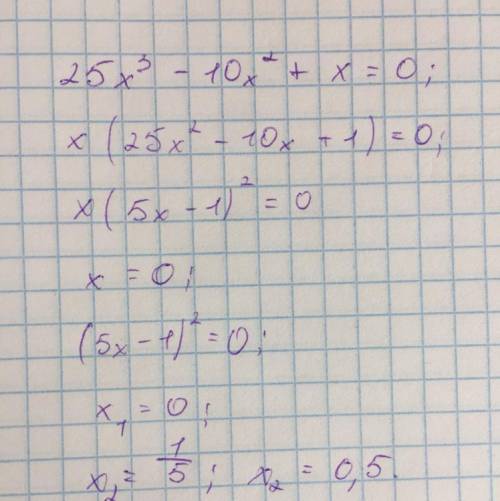 25x³ - 10x² + x = 0;
x (25x² - 10x + 1) = 0;
x (5x - 1)² = 0
x = 0;
(5x - 1)² = 0;
x₁ = 0;
x₂ = 1/5; x₂ = 0,5.